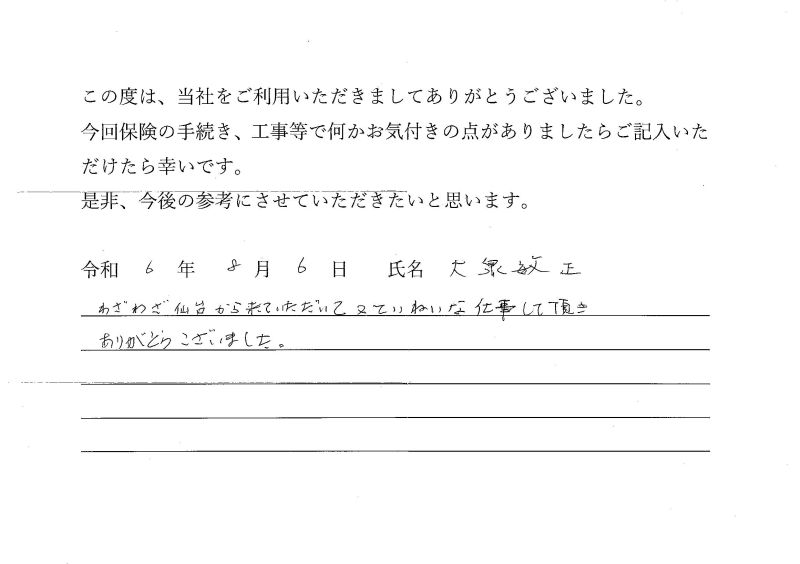 この度は、当社をご利用いただきましてありがとうございました。
今回保険の手続き、工事等で何かお気付きの点がありましたらご記入いた
だけたら幸いです。
是非、今後の参考にさせていただきたいと思います。
令和 6 年 8 月 6 日 氏名 大泉敏正
わざわざ仙台から来ていただいて又ていねいな仕事して頂き
ありがとうございました。